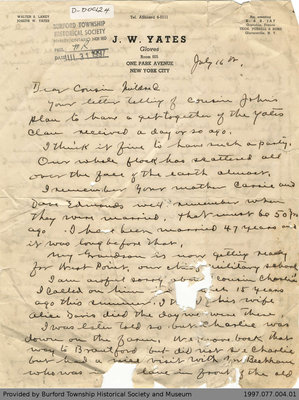 WALTER S. LANDT
JOSEPH W. YATES
D-000124
Tel. AShland 4-5111
BURFORD TOWNSHIP
HISTORICAL SOCIETY
J. W. YATES
Gloves
Room 605
ONE PARK AVENUE
NEW YORK CITY
July 16th.
Dear Cousin
Your letter telling of Cousin John's
plan to have a get together of the Yates
Clan received a day or so ago.
I think it fine to have such a party.
Our whole flock has scattered all
over the face of the earth almost.
I remember your mother Carrie and
Dave Edmonds well remember when
they were married. That must be 50 yrs
ago. I have been married 47 years and
it was long before that.
My Grandson is now getting ready
for West Point, our military school.
I am awful sorry about Cousin Charlie
I called on him 15 years
ago this summer. his wife
Alice Davis died the day we were there
I was later told so but Charlie was
down on the farm. We came back that
way to Brantford but did not see Charlie
but had a nice visit with
who was in front of the old
Provided by Burford Township Historical Society and Museum
1997.077.004.01